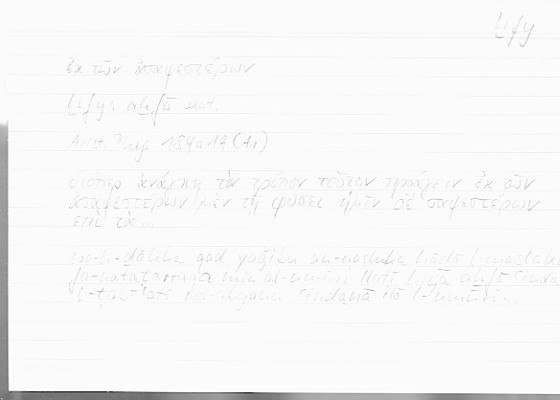 ḫfy
ἐκ τῶν ἀσαφεστέρων
Arist. Phys. 184a19
διόπερ ἀνάγκη τὸν τρόπον τοῦτον προάγειν ἐκ τῶν
ἀσαφεστέρων μὲν τῇ φύσει ἡμῖν δὲ σαφεστέρων
ἐπὶ τὰ...
wa-li-ḏālika qad yaǧibu an nasluka hāḏā l-maslaka
min al-umūri llatī hiya aḫfā ʿinda
l-ṭabīʿati ʿindanā ilā l-umūri